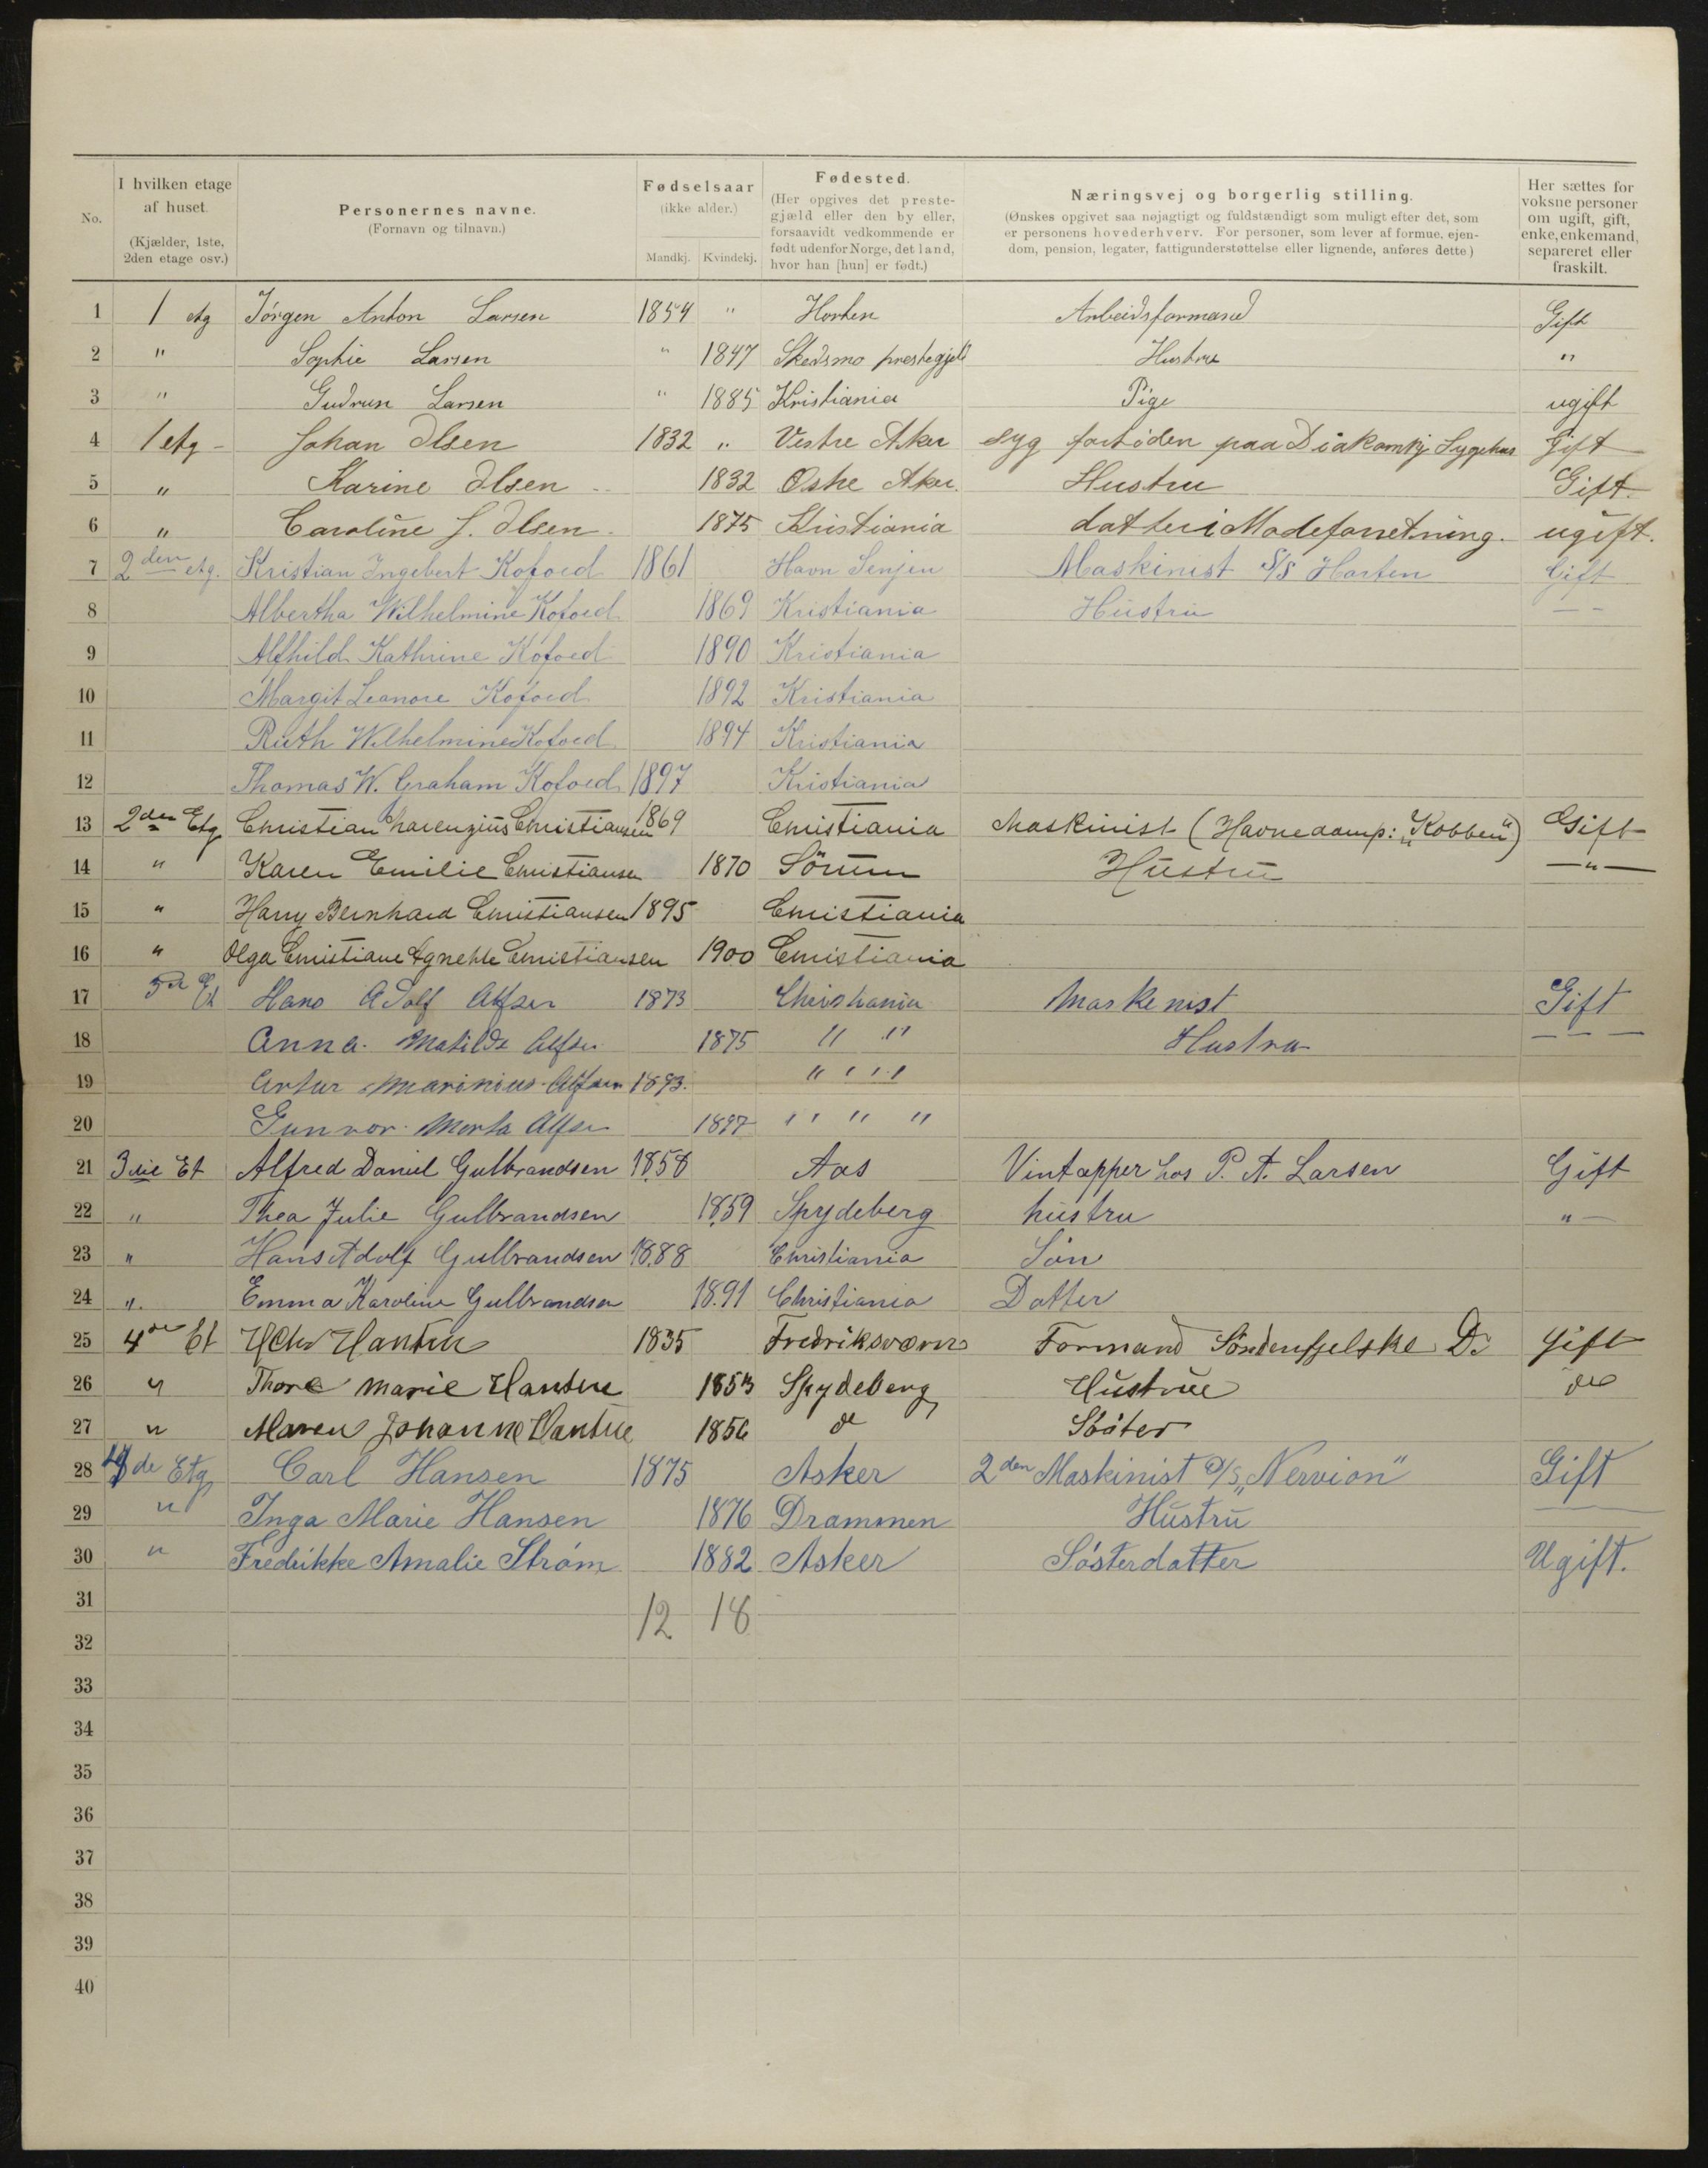 No.
I hvilken etage af huset. (Kjælder, 1ste, 2den etage osv.)
Personernes navne. (Fornavn og tilnavn.)
Fødselsaar (ikke alder.) Mandkj. Kvindekj.
Fødested. (Her opgives det prestegjæld eller den by eller, forsaavidt vedkommende er født udenfor Norge, det land, hvor han [hun] er født.)
Næringsvej og borgerlig stilling. (Ønskes opgivet saa nøjagtigt og fuldstændigt som muligt efter det, som er personens hovederhverv. For personer, som lever af formue, ejendom, pension, legater, fattigunderstøttelse eller lignende, anføres dette)
Her sættes for voksne personer om ugift, gift, enke, enkemand, separeret eller fraskilt.
1 1 etg Jørgen Anton Larsen 1854 " Horten Arbeidsformand Gift
2 " Sophie Larsen " 1847 Skedsmo prestegjeld Hustru "
3 " Gudrun Larsen " 1885 Kristiania Pige ugift
4 1 etg - Johan Olsen 1832 " Vestre Aker syg paa Sygehus Gift
5 " Karine Olsen 1832 Østre Aker. Hustru Gift.
6 " Caroline J. Olsen 1875 Kristiania datter i Modeforretning. ugift.
7 2den etg. Kristian Ingebert Kofoed 1861 Havn Senjen Maskinist S/S Horten Gift
8 Albertha Wilhelmine Kofoed 1869 Kristiania Hustru - -
9 Alfhild Kathrine Kofoed 1890 Kristiania
10 Margit Leonore Kofoed 1892 Kristiania
11 Ruth Wilhelmine Kofoed 1894 Kristiania
12 Thomas W. Graham Kofoed 1897 Kristiania
13 2den Etg Christian Christiansen 1869 Christiania Maskinist (Havnedamp: „Kobben") Gift
14 " Karen Emilie Christiansen 1870 Sörum Hustru - " -
15 " Harry Bernhard Christiansen 1895 Christiania
16 " Olga Christiane Agnethe Christiansen 1900 Christiania
17 3die Et Hans Adolf Alfsen 1873 Christiania Maskenist Gift
18 Anna. Matilde Alfsen 1875 " " Hustru - - -
19 Artur Marinius Alfsen 1893. " " "
20 Gunvor Marta Alfsen 1897 " " " "
21 3die Et Alfred Daniel Gulbrandsen 1858 Aas Vintapper hos P. A. Larsen Gift
22 " Thea Julie Gulbrandsen 1859 Spydeberg hustru " -
23 " Hans Adolf Gulbrandsen 1888 Christiania Sön
24 " Emma Karoline Gulbrandsen 1891 Christiania Datter
25 4de Et 1835 Fredriksværn Formand Söndenfjelske D. Gift
26 " Marie 1853 Spydeberg Hustrue do
27 " Maren Johanne 1856 do Söster
28 4de Etg Carl Hansen 1875 Asker 2den Maskinist D/S „Nervion" Gift
29 " Inga Marie Hansen 1876 Drammen Hustru
30 " Fredrikke Amalie Strøm 1882 Asker Søsterdatter Ugift.
31 12 18
32
33
34
35
36
37
38
39
40